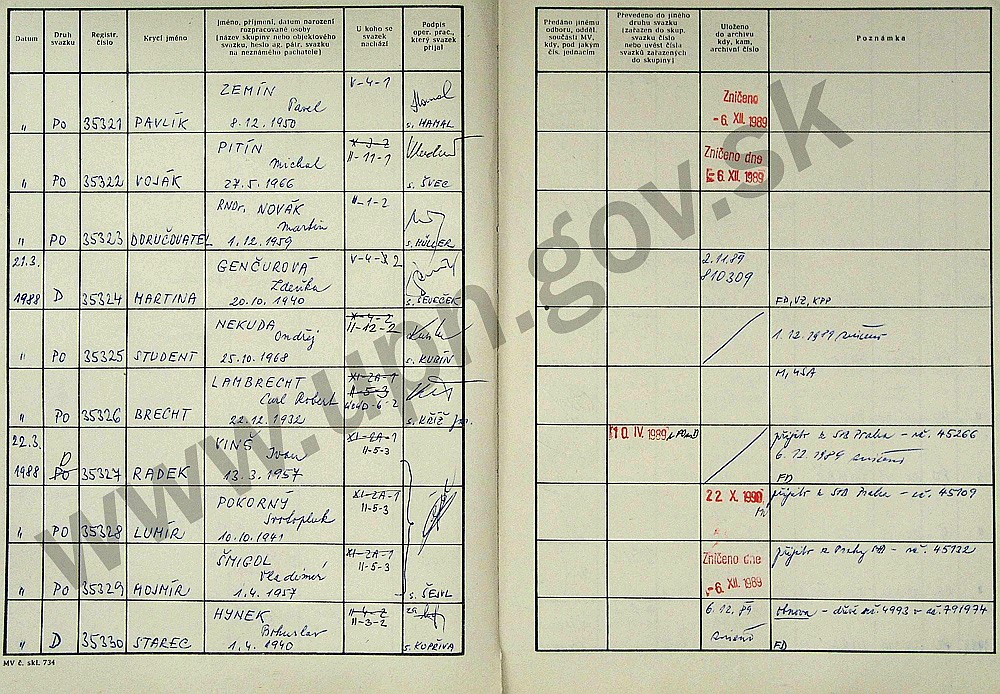 Datum
Druh svazku
Registr. číslo
Krycí jméno
Jméno, příjmení, datum narození
rozpracované osoby
(název skupiny nebo objektového
svazku, heslo ag. pátr. svazku
na neznámého pachatele)
U koho se svazek nachází
Podpis
oper. prac.,
který svazek
přijal
Předáno jinému
odboru, odděl.
součásti MV,
kdy, pod jakým
čís. jednacím
Převedeno do jiného
druhu svazku
(zařazen do skup.
svazku číslo
nebo uvést čísla
svazků zařazených
do skupiny)
Uloženo
do archivu
kdy, kam,
archivní číslo
Poznámka
ZEMÍN V-4-1
Pavel
" PO 35321 PAVLÍK 8.12.1950 s. HAMAL
Zničeno
-6. XII. 1989
PITÍN X-3-2
Michal II-11-1
" PO 35322 VOJÁK 27.5.1966 s. ŠVEC
Zničeno dne
-6. XII. 1989
RNDr. NOVÁK II-1-2
Martin
" PO 35323 DORUČOVATEL 1.12.1959 s. MÜLLER
21.3. GENČUROVÁ V-4-3 2
Zdenka
1988 D 35324 MARTINA 20.10.1940 s. ŠEVEČEK
2.11.89
810309
FD, VZ, KPP
NEKUDA X-4-2
Ondřej II-12-2
" PO 35325 STUDENT 25.10.1968 s. KUBÍN
1.12.1989 zničení
LAMBRECHT XI-2A-1
Carl Robert II-5-3
" PO 35326 BRECHT 22.12.1932 s. KŘÍŽ
M, 45A
22.3. VINŠ XI-2A-1
D Ivan II-5-3
1988 PO 35327 RADEK 13.3.1957
10. IV. 1989
přijato z StB Praha - č. 45266
6.12.1989 zničení
FD
POKORNÝ XI-2A-1
Svatopluk II-5-3
" PO 35328 LUMÍR 10.10.1941
22 X. 1990
přijato z StB Praha - č. 45109
ŠMIGOL XI-2A-1
Vladimír II-5-3
" PO 35329 MOJMÍR 1.4.1957 s. ŠEJVL
Zničeno dne
-6. XII. 1989
45132
HYNEK II-4-2
Bohuslav II-3-2
" D 35330 STAREC 1.4.1940 s. KOPŘIVA
6.12.89
zničení
obnova - 4993 791974
FD
MV č. skl. 734
www.upn.gov.sk